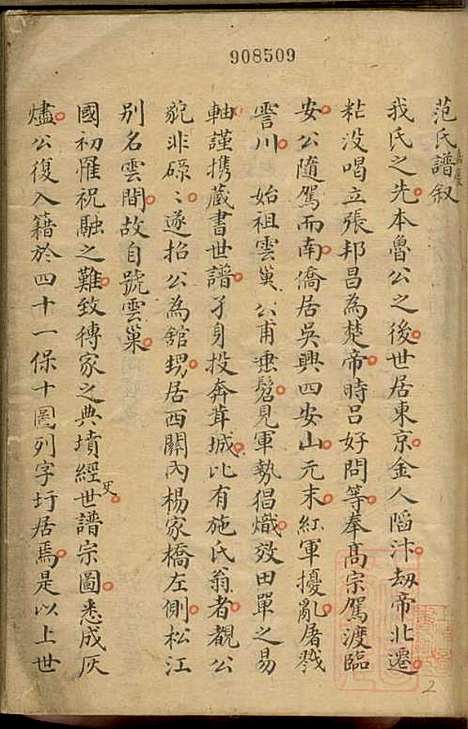 908509
范氏譜叙
我氏之先本魯公之後世居東京金人陷汴劫帝北遷
粘没喝立張邦昌為楚帝時吕好問等奉高宗駕渡臨
安公随駕而南僑居吳興四安山元末紅軍擾亂屠戮
霅川 始祖雲巢公甫垂髫見軍勢猖熾效田單之易
軸謹携藏書世譜孑身投奔茸城比有施氏翁者覩公
貌非碌〻遂招公為舘甥居西關内楊家橋左側松江
别名雲間故自號雲巢
國初罹祝融之難致傳家之典墳經史世譜宗圖悉成灰
燼公復入籍於四十一保十圖列字圩居焉是以上世
2